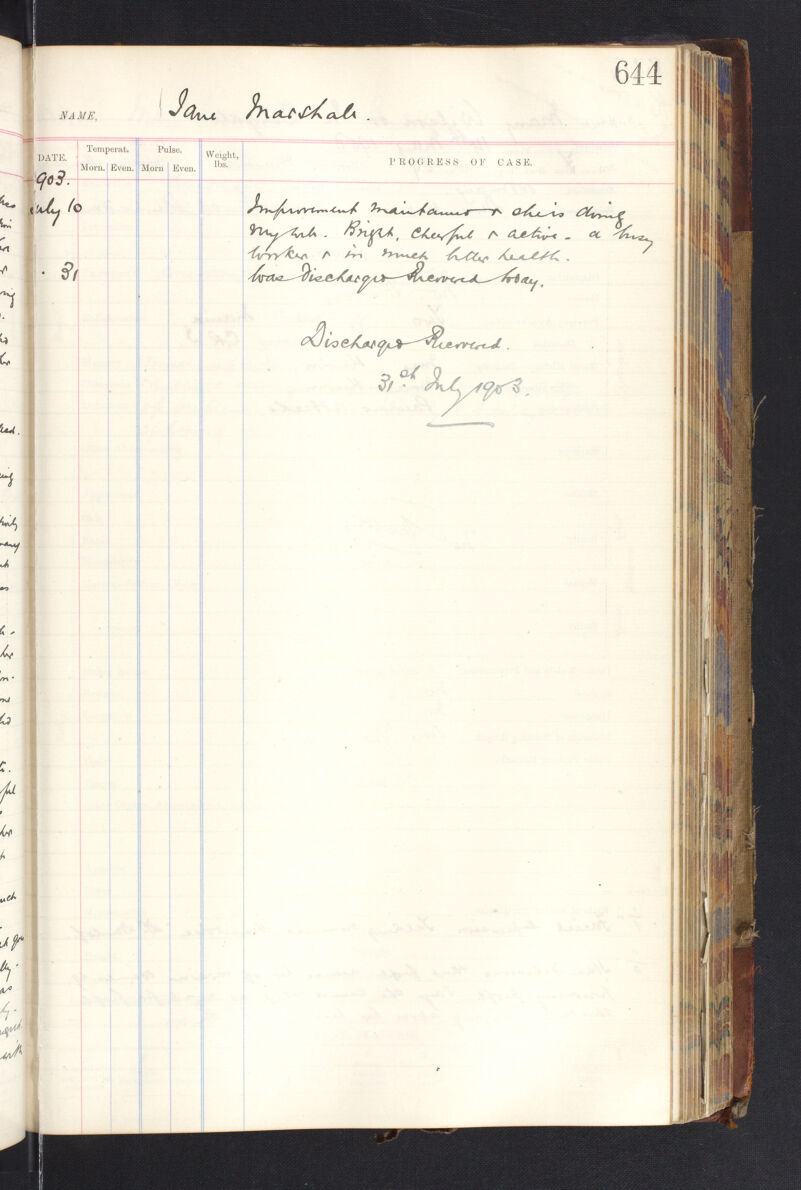 644
NAME, Jane Marshall.
DATE. Temperat. Pulse. Weight, lbs. PROGRESS OF CASE.
Morn. Even. Morn Even.
903.
July 10 Improvement maintained & she is doing
very well. Bright, cheerful & active - a busy
worker & in much better health.
" 31 Was Discharged Recovered today.
Discharged Recovered.
31st July 1903.